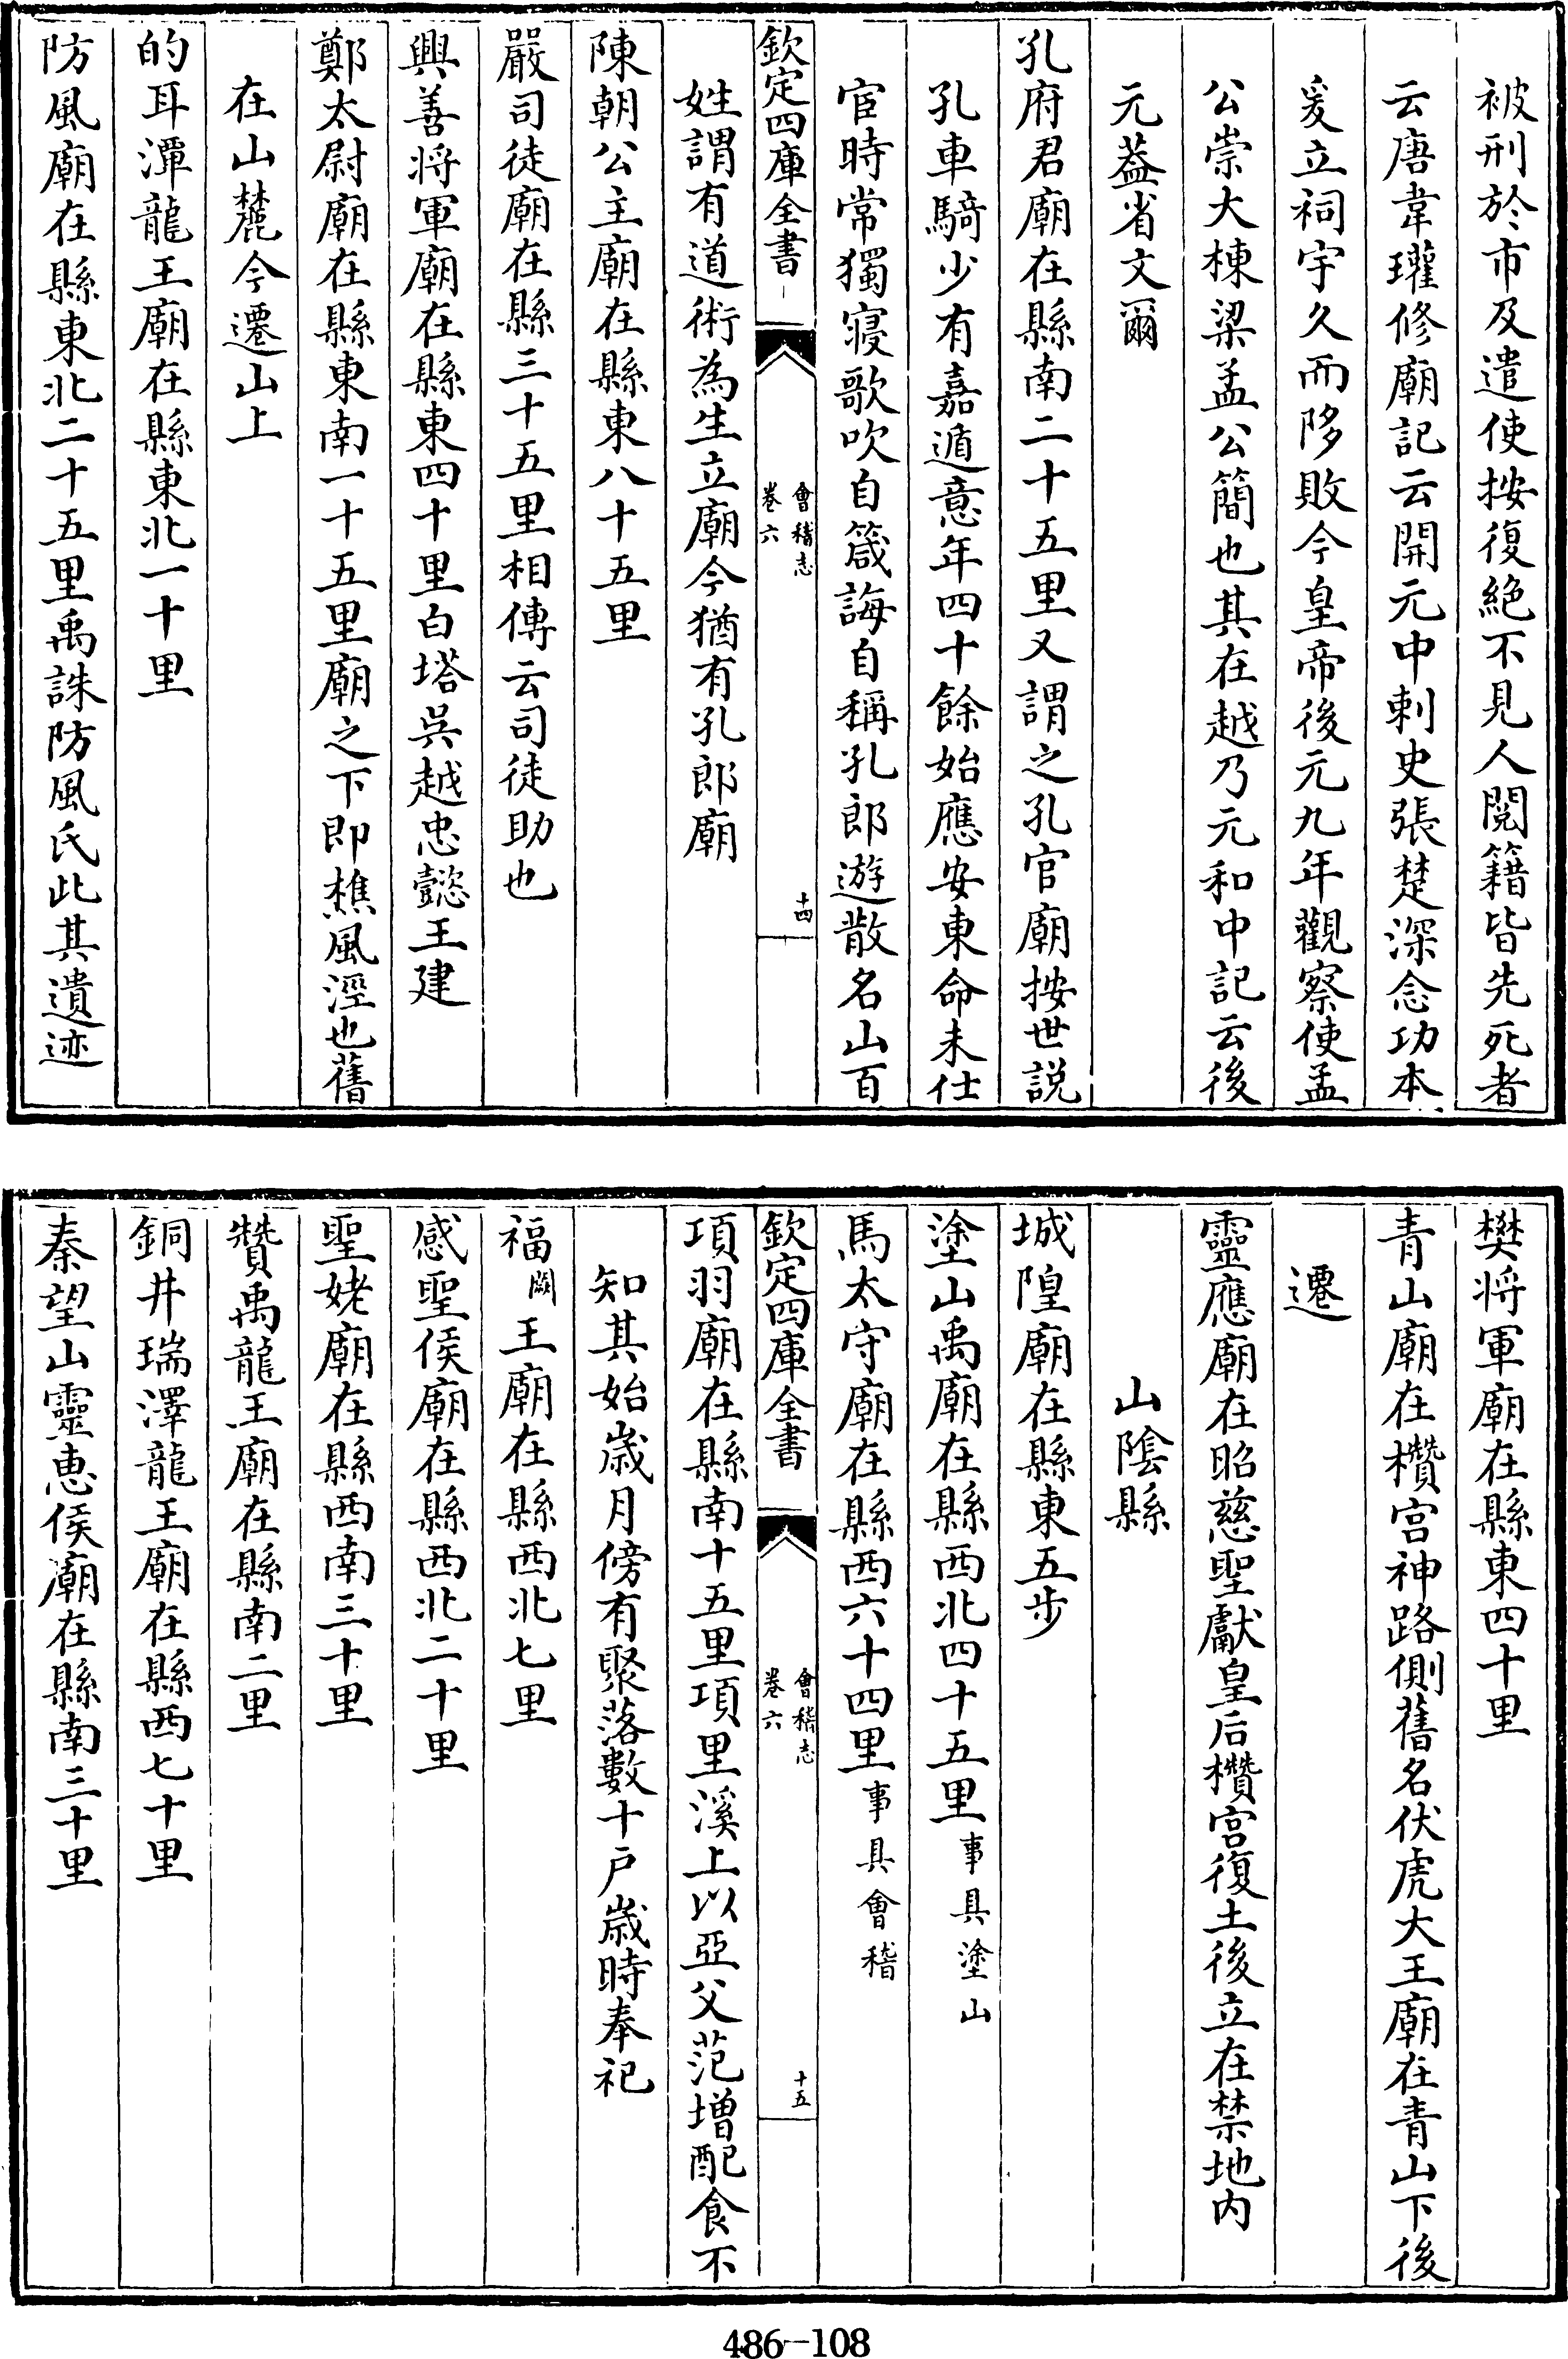 被刑於市及遣使按復絶不見人閲籍皆先死者
云唐韋瓘修廟記云開元中刺史張楚深念功本
爰立祠宇久而陊敗今皇帝後元九年觀察使孟
公崇大棟梁孟公簡也其在越乃元和中記云後
元葢省文爾
孔府君廟在縣南二十五里又謂之孔官廟按世説
孔車騎少有嘉遁意年四十餘始應安東命未仕
宦時常獨寢歌吹自箴誨自稱孔郎遊散名山百
欽定四庫全書
會稽志
卷六
十四
姓謂有道術為生立廟今猶有孔郎廟
陳朝公主廟在縣東八十五里
嚴司徒廟在縣三十五里相傳云司徒助也
興善将軍廟在縣東四十里白塔吳越忠懿王建
鄭太尉廟在縣東南一十五里廟之下即樵風涇也舊
在山麓今遷山上
的耳潭龍王廟在縣東北一十里
防風廟在縣東北二十五里禹誅防風氏此其遺迹
樊将軍廟在縣東四十里
青山廟在欑宮神路側舊名伏虎大王廟在青山下後
遷
靈應廟在昭慈聖獻皇后欑宮復土後立在禁地内
山陰縣
城隍廟在縣東五步
塗山禹廟在縣西北四十五里事具塗山
馬太守廟在縣西六十四里事具會稽
欽定四庫全書
會稽志
卷六
十五
項羽廟在縣南十五里項里溪上以亞父范增配食不
知其始歳月傍有聚落數十戸歳時奉祀
福闕王廟在縣西北七里
感聖侯廟在縣西北二十里
聖姥廟在縣西南三十里
贊禹龍王廟在縣南二里
銅井瑞澤龍王廟在縣西七十里
秦望山靈恵侯廟在縣南三十里
486-108